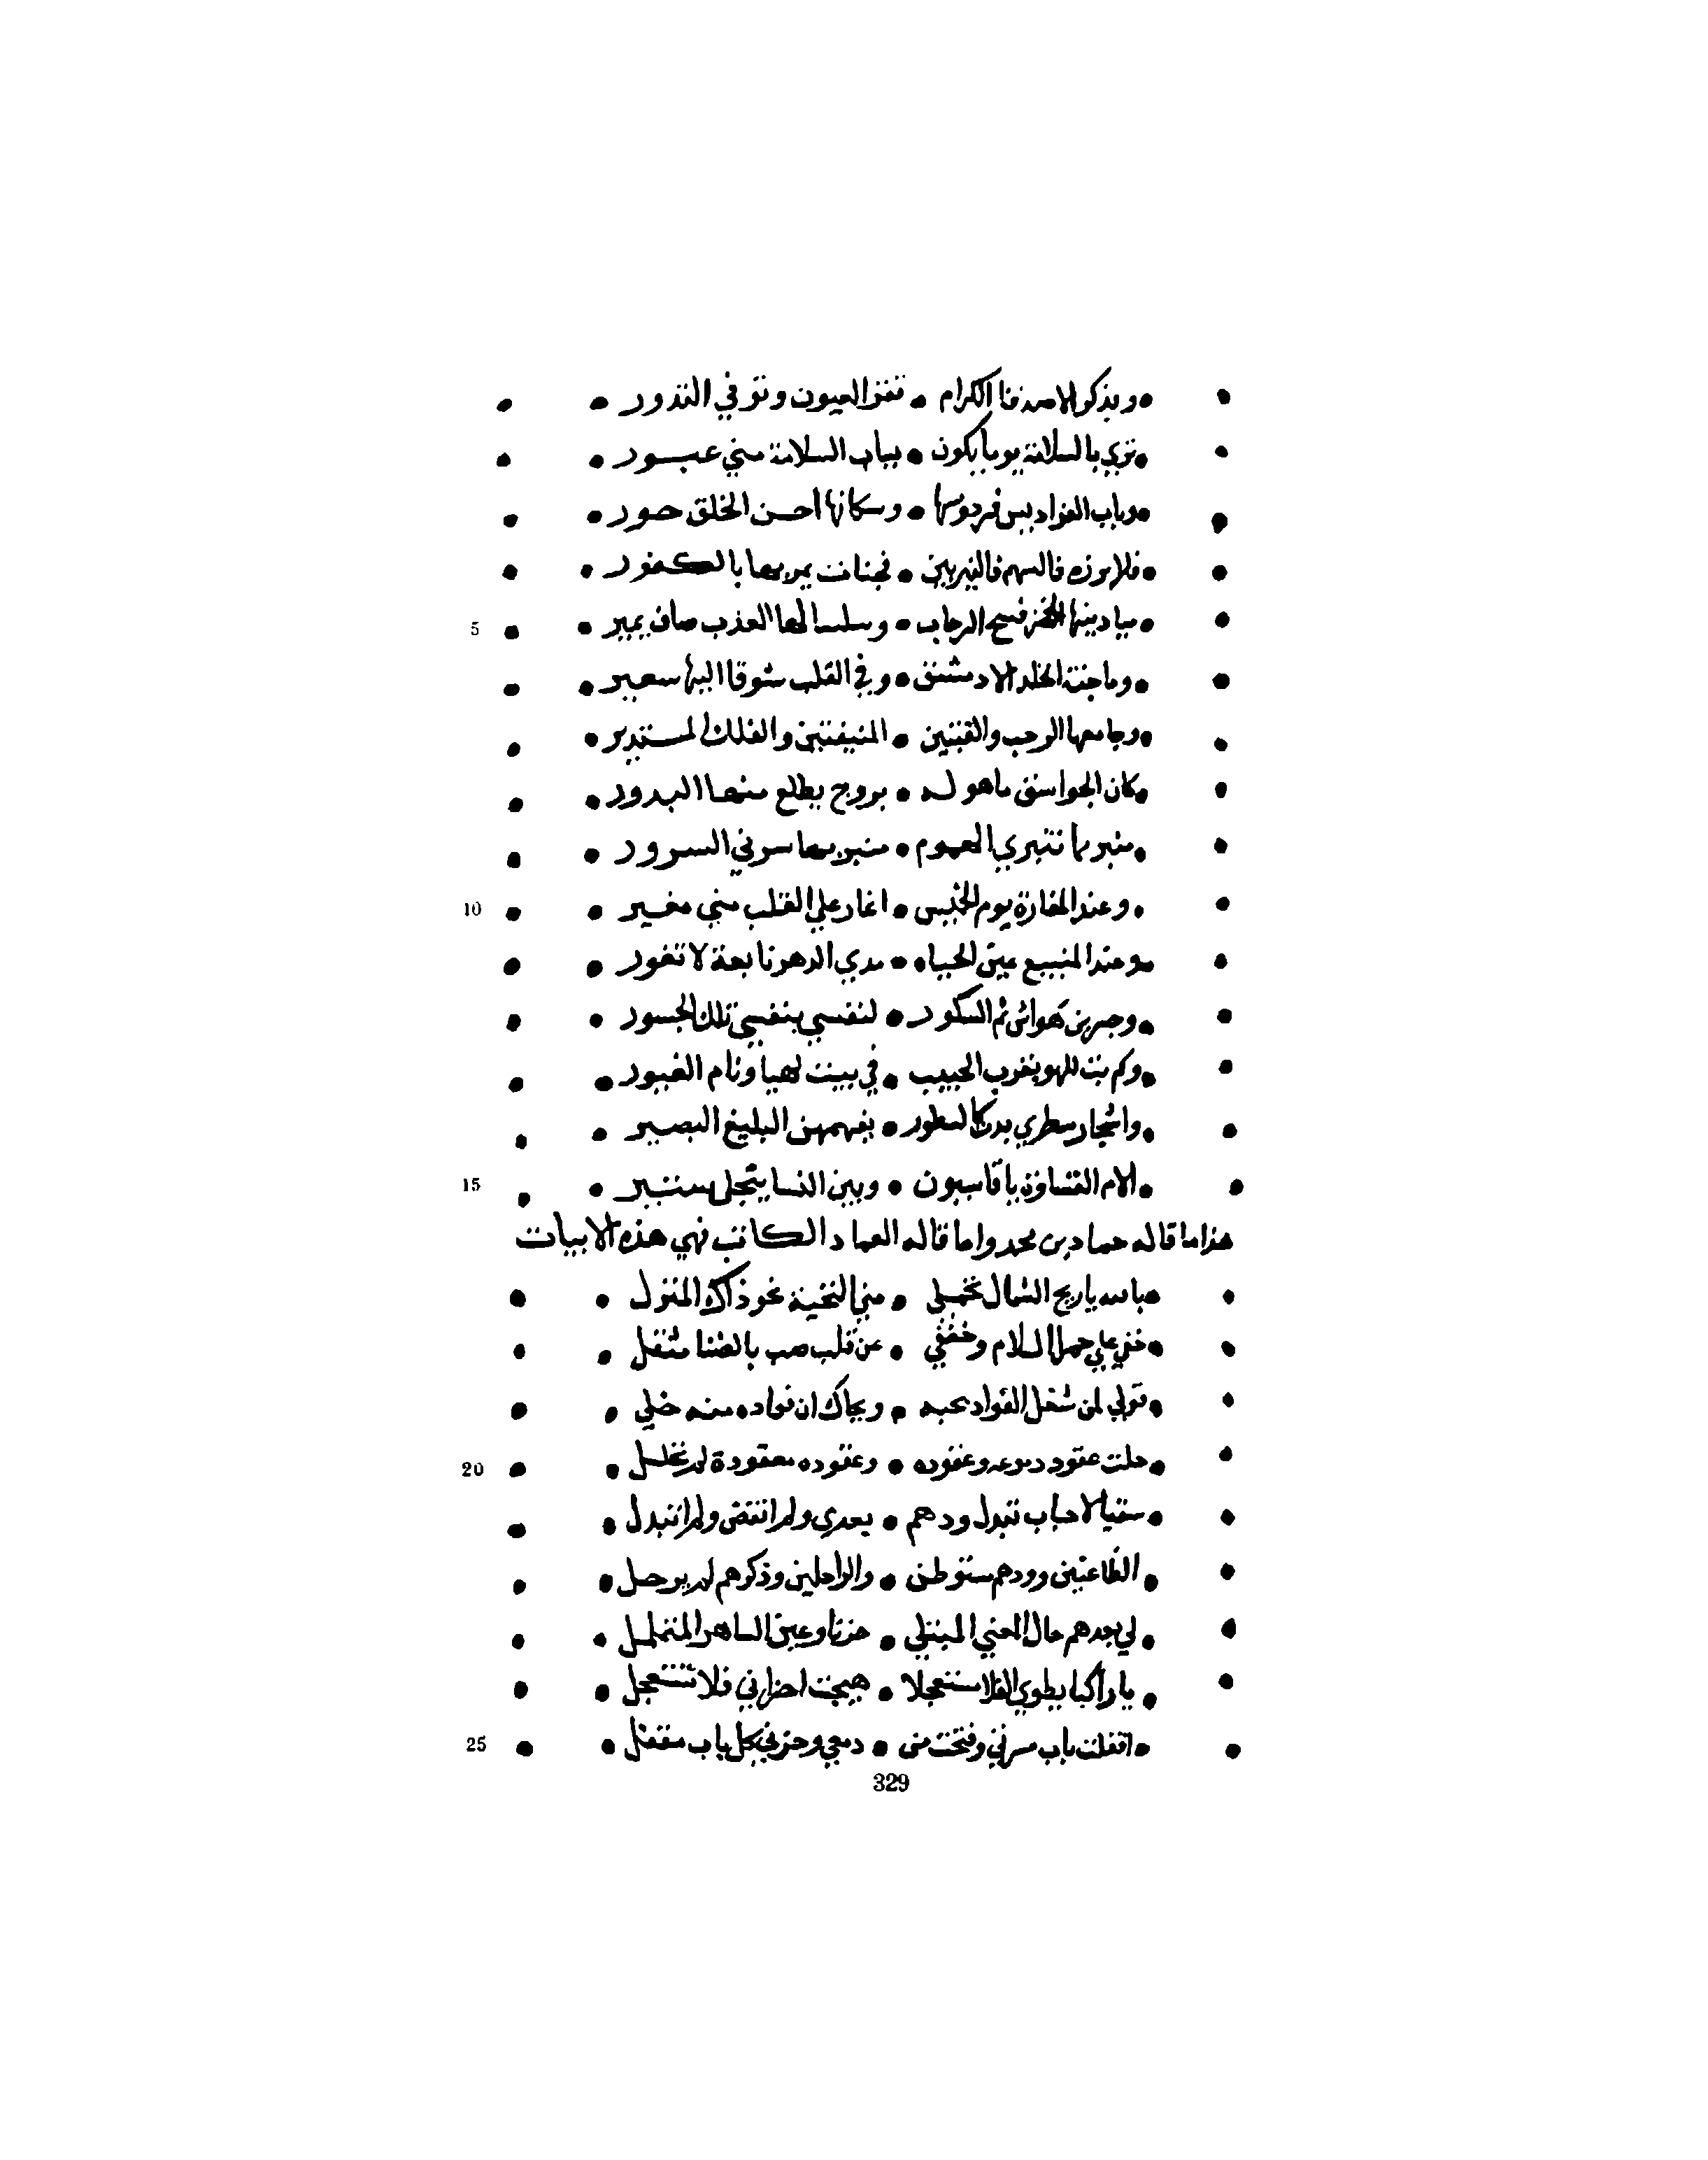 ويذكر الاصدقا الكرام • تقر العيون وتوفي النذور
تري بالسلامة يوما يكون • بباب السلامة مني عبور
وباب الفراديس فردوسها • وسكانها احسن الخلق حور
فالسهم فالنيربين • فجنات بالكفور
5 ميادينها الخضر فسح الرحاب • وسلسالها العذب صاف يمير
وما جنة الخلد الا دمشق • وفي القلب شوقا اليها سعير
وجامعها الرحب والقبتين • المنيفتين والفلك المستدير
كان الجواسق ماهوله • بروج يطلع منها البدور
بما تتبري الهموم • سرني السرور
10 وعند المغارة يوم الخميس • اغار علي القلب مني مغير
وعند المنيبع عين الحياه • مدي الدهر نابعة لا تغور
وجسر بن هواش ثم السكور • لنفسي بنفسي تلك الجسور
وكم بت للهو بقرب الحبيب • في بيت لهيا ونام الغيور
واشجار سطري بدت كالسطور • يفهمهن البليغ البصير
15 الام القساوة يا قاسيون • وبين السنا يتجلي سنير
هذا ما قاله حماد بن محمد واما قاله العماد الكاتب فهي هذه الابيات
بالله يا ريح الشمال تحملي • مني التحية نحو ذاك المنزل
حمل السلام وخففي • عن قلب صب بالضنا مثقل
قولي لمن شغل الفواد بحبه • وبحاك ان فواده منه خلي
20 حلت عقود دموعه وعقوده • وعقوده معقودة لم تحلل
سقيا لاحباب تبدل ودهم • بعدي ولم انقض ولم اتبدل
الظاعنين وودهم مستوطن • والراحلين وذكرهم لم يرحل
لي بعدهم حال المعني المبتلي • حزنا وعين الساهر المتململ
يا راكبا يطوي الفلا مستعجلا • هيجت احزاني فلا تستعجل
25 اقفلت باب مسرتي وفتحت من • دمعي وحزني كل باب مقفل
329